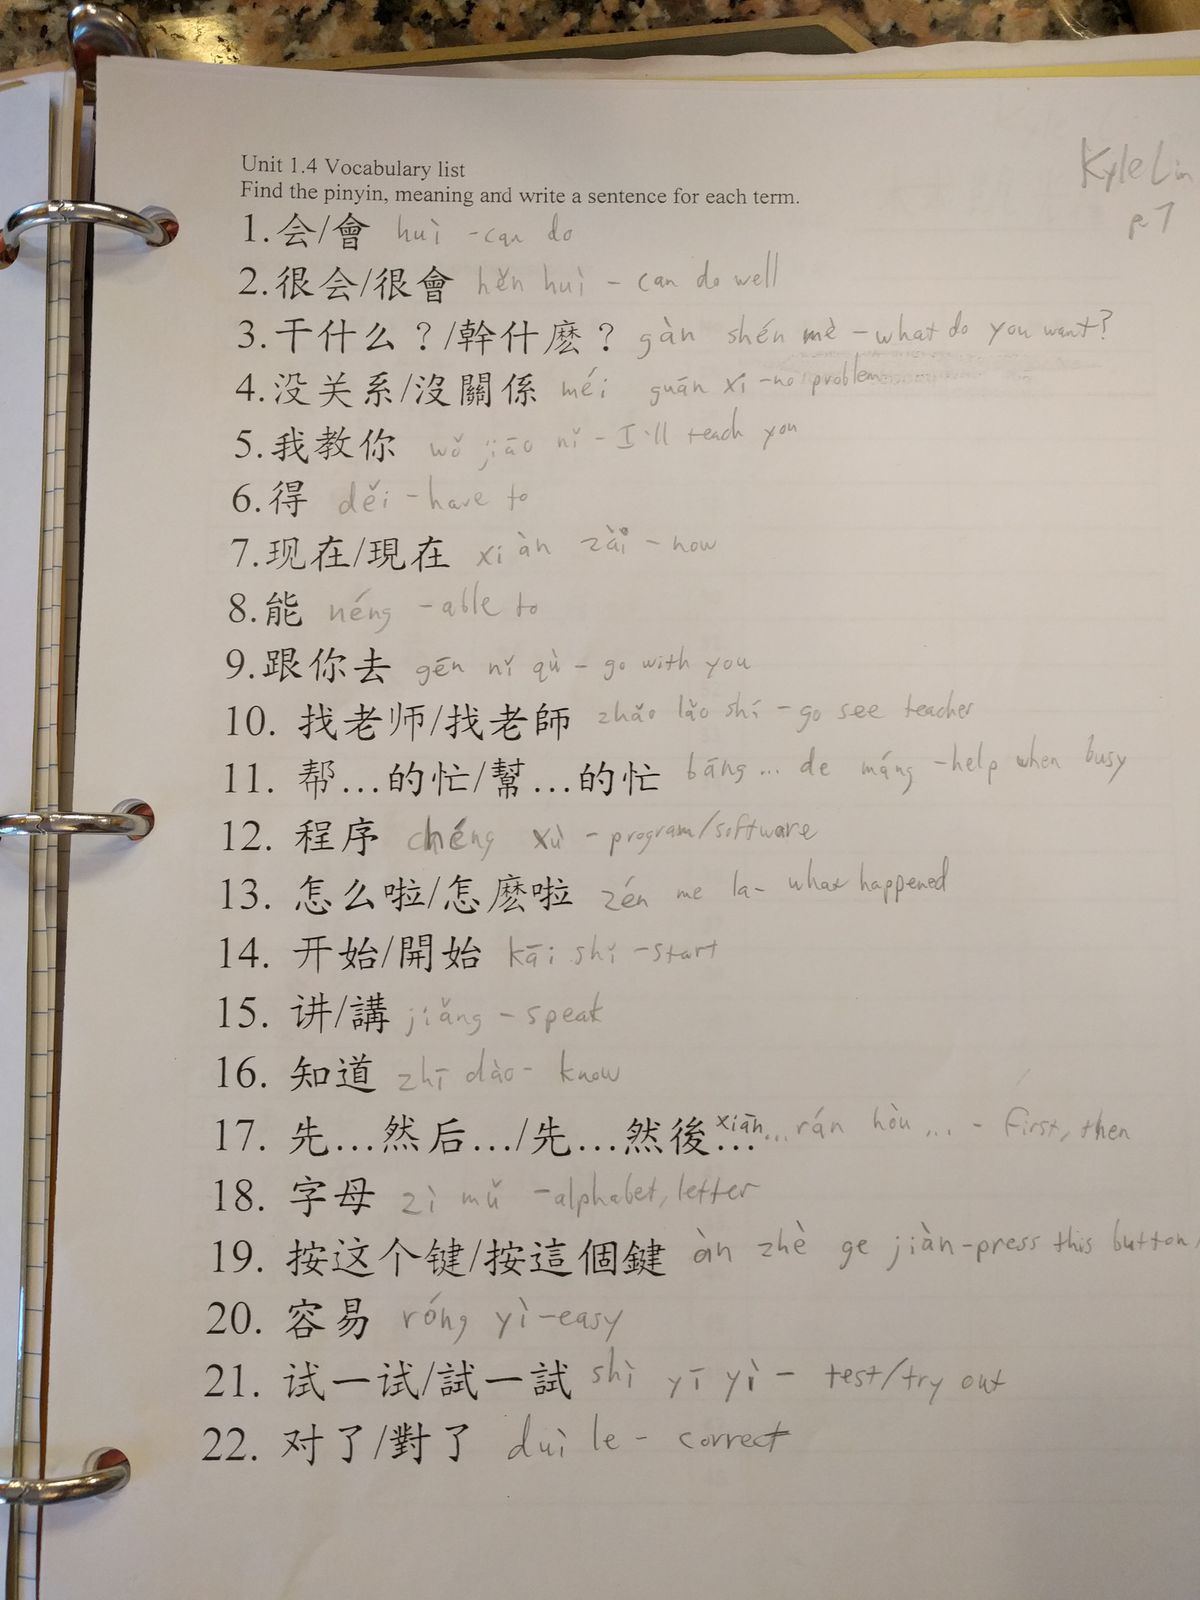 Unit 1.4 Vocabulary list
Kyle Lin
Find the pinyin, meaning and write a sentence for each term.
p.7
1. 会/會 huì - can do
2. 很会/很會 hěn huì - can do well
3. 干什么？/幹什麽？ gàn shén mè - what do you want?
4. 没关系/沒關係 méi guān xi - no problem
5. 我教你 wǒ jiāo nǐ - I'll teach you
6. 得 děi - have to
7. 现在/現在 xi àn zài - now
8. 能 néng - able to
9. 跟你去 gēn nǐ qù - go with you
10. 找老师/找老師 zhǎo lǎo shí - go see teacher
11. 帮...的忙/幫...的忙 bāng... de máng - help when busy
12. 程序 chéng xù - program/software
13. 怎么啦/怎麽啦 zén me la - what happened
14. 开始/開始 kāi shǐ - start
15. 讲/講 jiǎng - speak
16. 知道 zhī dào - know
17. 先...然后.../先...然後... xiān... rán hòu ... - First, then
18. 字母 zì mǔ - alphabet, letter
19. 按这个键/按這個鍵 àn zhè ge jiàn - press this button
20. 容易 róng yì - easy
21. 试一试/試一試 shì yī yì - test/try out
22. 对了/對了 duì le - correct